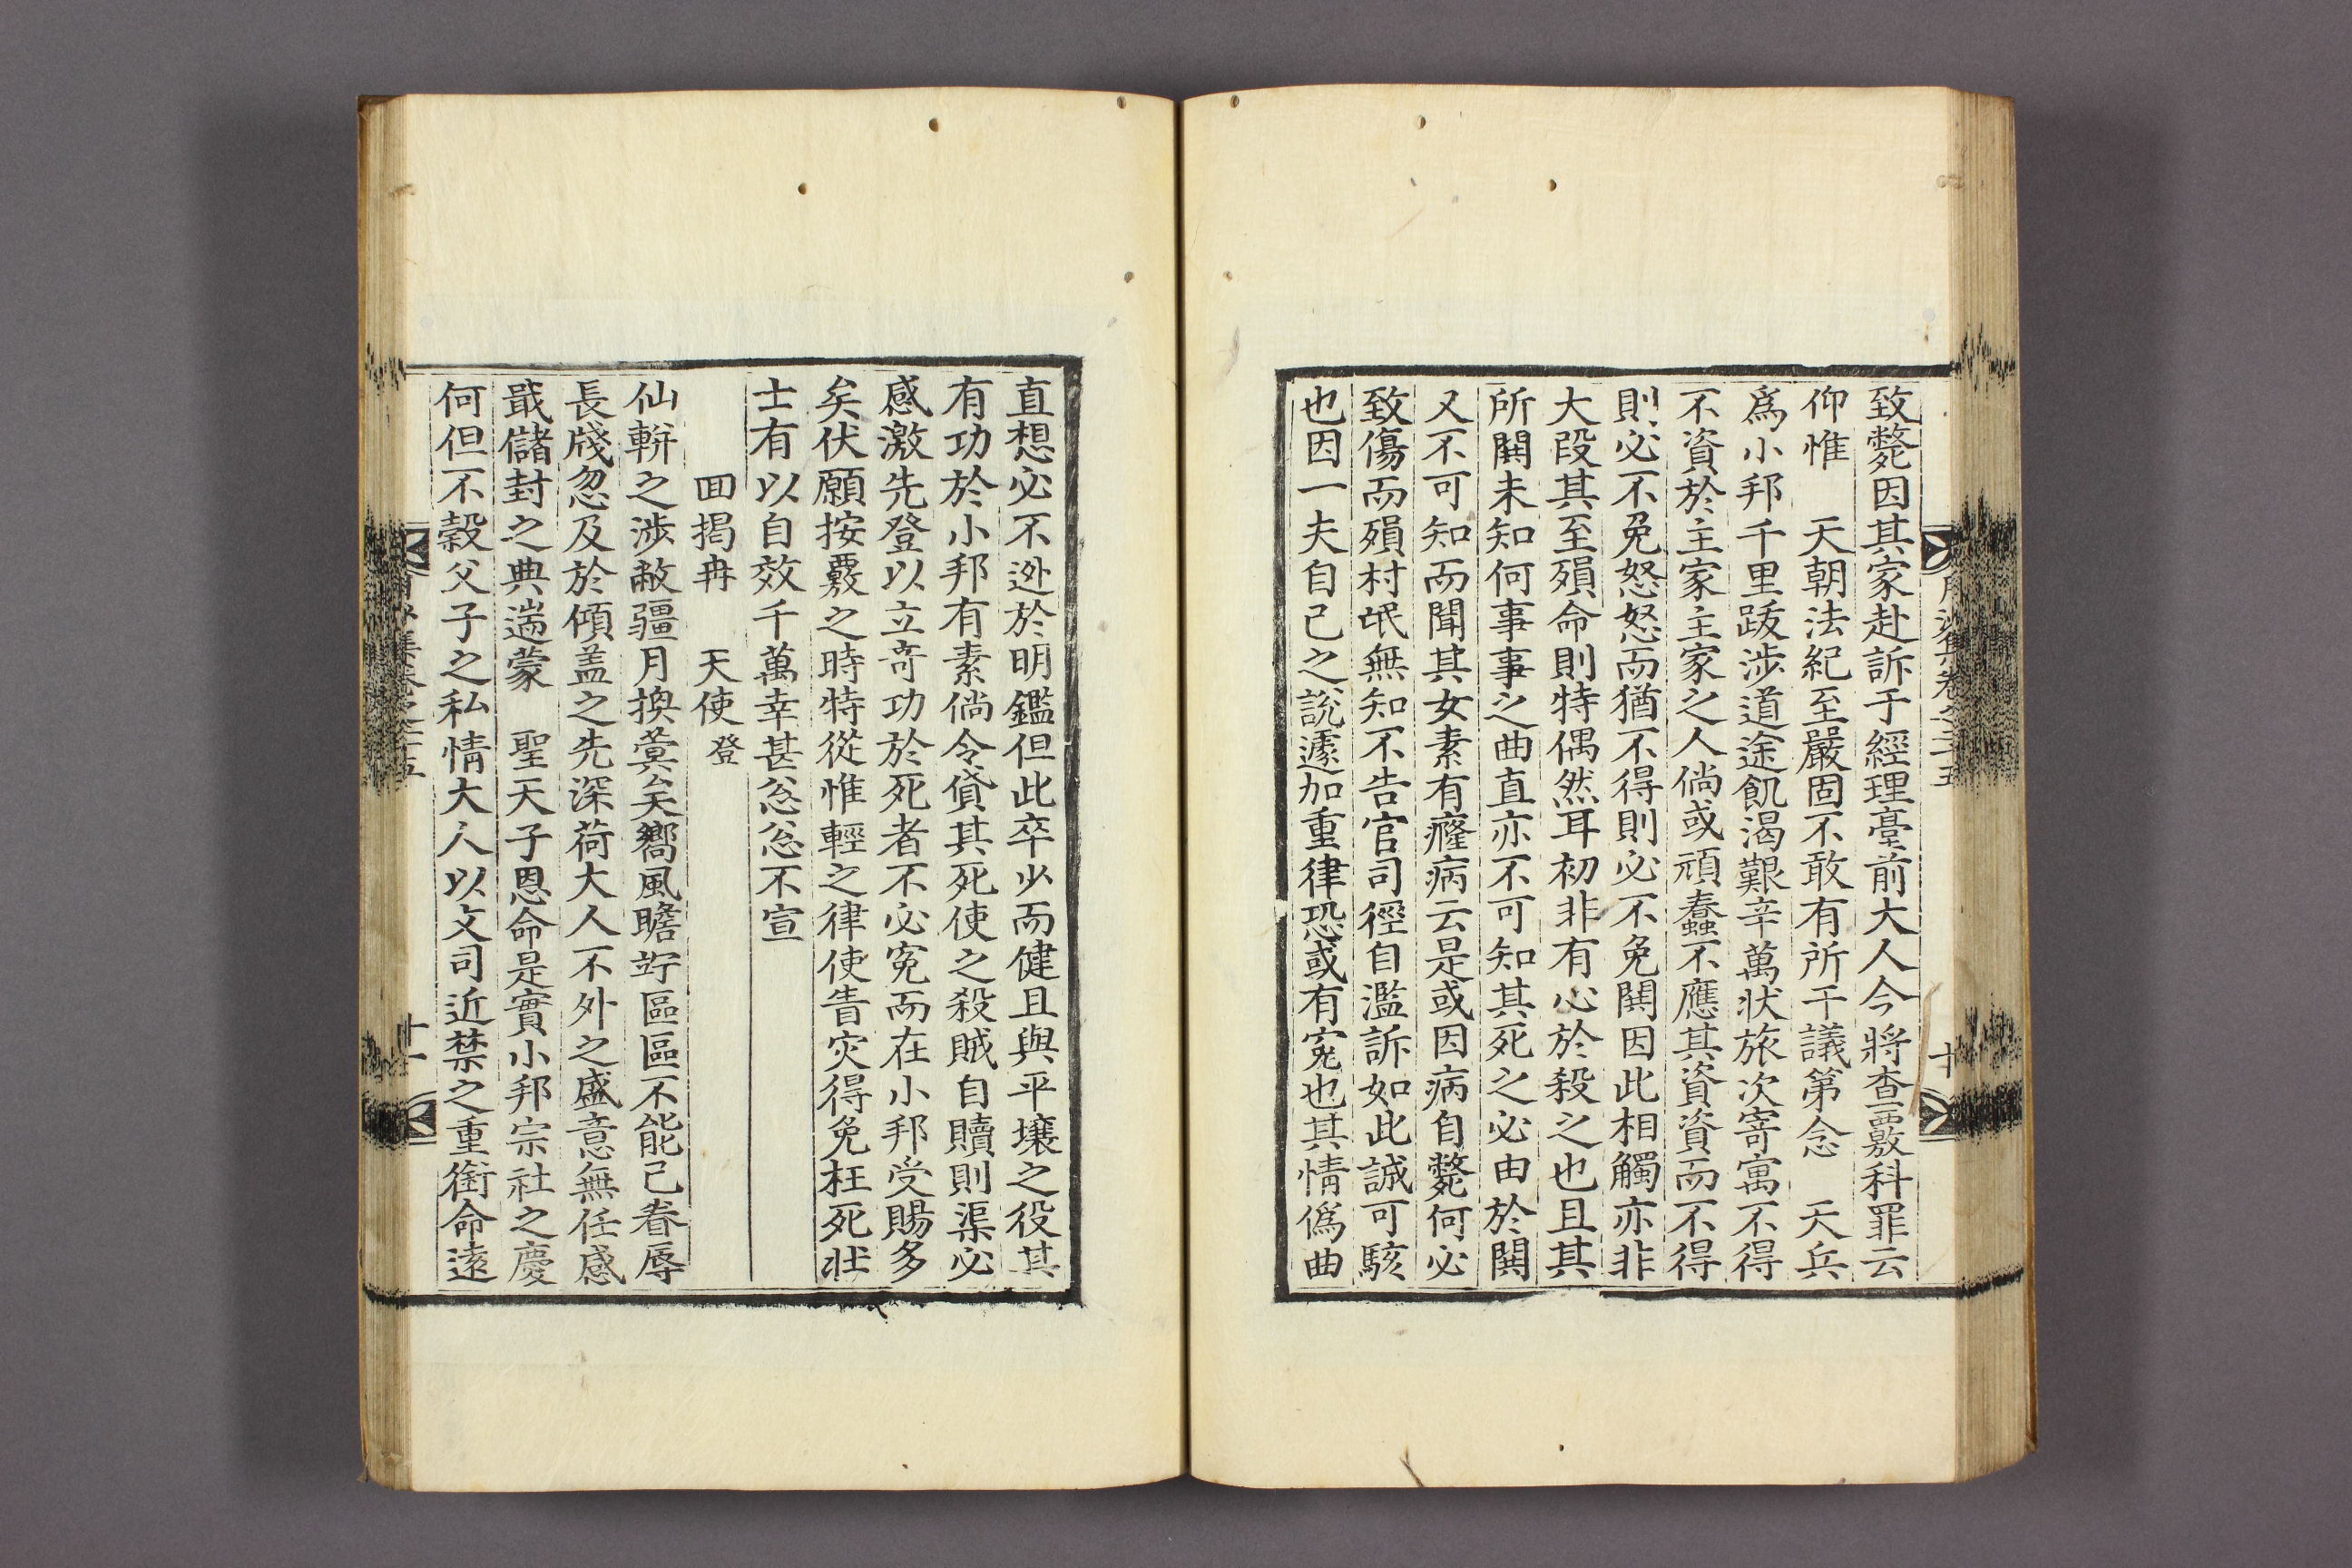 致斃因其家赴訴于經理臺前大人今將查覈科罪云
仰惟　天朝法紀至嚴固不敢有所干議第念　天兵
爲小邦千里跋涉道途飢渴艱辛萬狀旅次寄寓不得
不資於主家主家之人倘或頑蠢不應其資資而不得
則必不免怒怒而猶不得則必不免鬨因此相觸亦非
大段其至殞命則特偶然耳初非有心於殺之也且其
所鬨未知何事事之曲直亦不可知其死之必由於鬨
又不可知而聞其女素有癃病云是或因病自斃何必
致傷而殞村氓無知不告官司徑自濫訴如此誠可駭
也因一夫自己之說遽加重律恐或有寃也其情僞曲
月沙集卷之二十五
十
直想必不迯於明鑑但此卒少而健且與平壤之役其
有功於小邦有素倘令貸其死使之殺賊自贖則渠必
感激先登以立奇功於死者不必寃而在小邦受賜多
矣伏願按覈之時特從惟輕之律使眚灾得免枉死壯
士有以自效千萬幸甚忩忩不宣
回揭冉　天使登
仙軿之涉敝疆月換蓂矣嚮風瞻竚區區不能已眷辱
長牋忽及於傾盖之先深荷大人不外之盛意無任感
戢儲封之典遄蒙　聖天子恩命是實小邦宗社之慶
何但不穀父子之私情大人以文司近禁之重銜命遠
十一